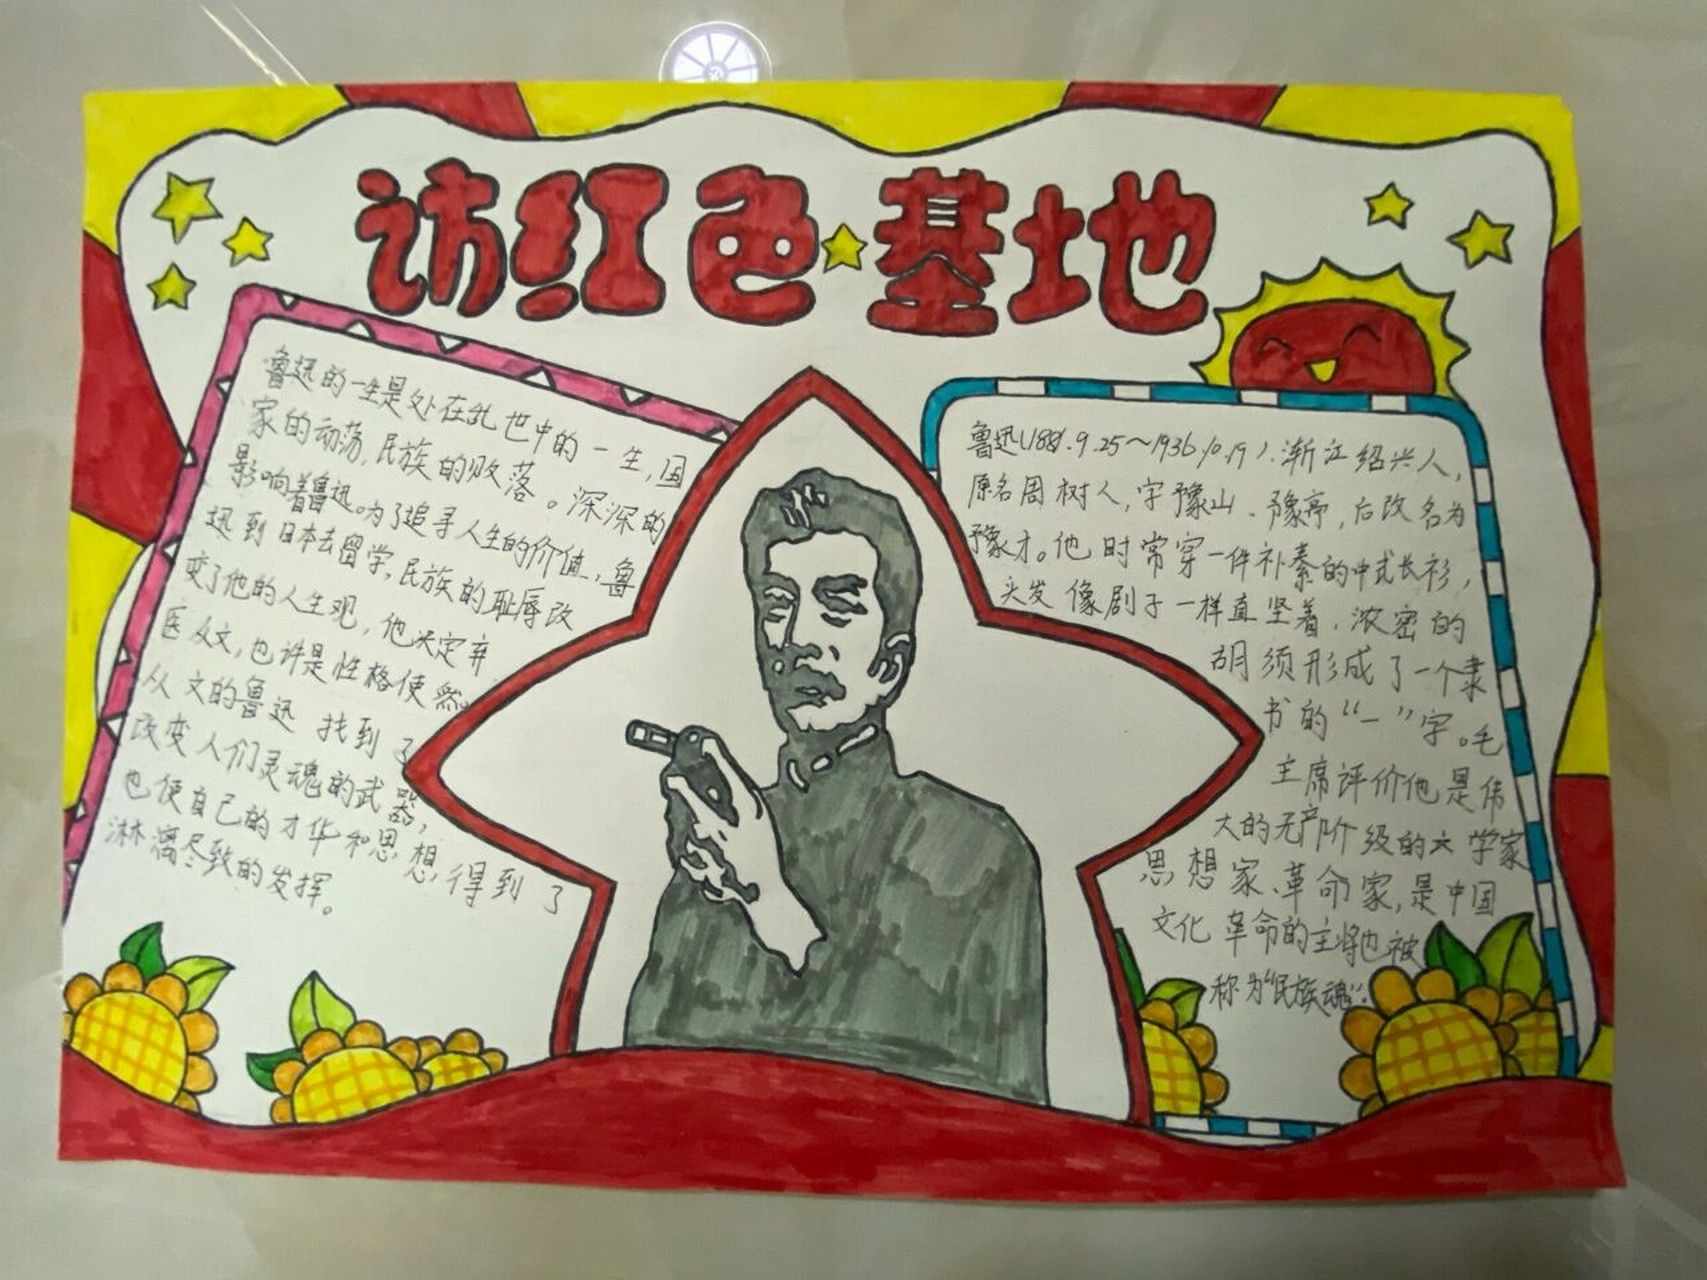 访红色基地
鲁迅的一生是处在乱世中的一生,国
家的动荡,民族的败落。深深的
影响着鲁迅。为了追寻人生的价值,鲁
迅到日本去留学,民族的耻辱改
变了他的人生观,他决定弃
医从文,也许是性格使然。
从文的鲁迅找到了
改变人们灵魂的武器,
也使自己的才华和思想得到了
淋漓尽致的发挥。
鲁迅(1881.9.25~1936.10.19).浙江绍兴人,
原名周树人,字豫山、豫亭,后改名为
豫才。他时常穿一件补素的中式长衫,
头发像剧子一样直坚着,浓密的
胡须形成了一个隶
书的“一”字。毛
主席评价他是伟
大的无产阶级的文学家
思想家、革命家,是中国
文化革命的主将他被
称为“民族魂”.